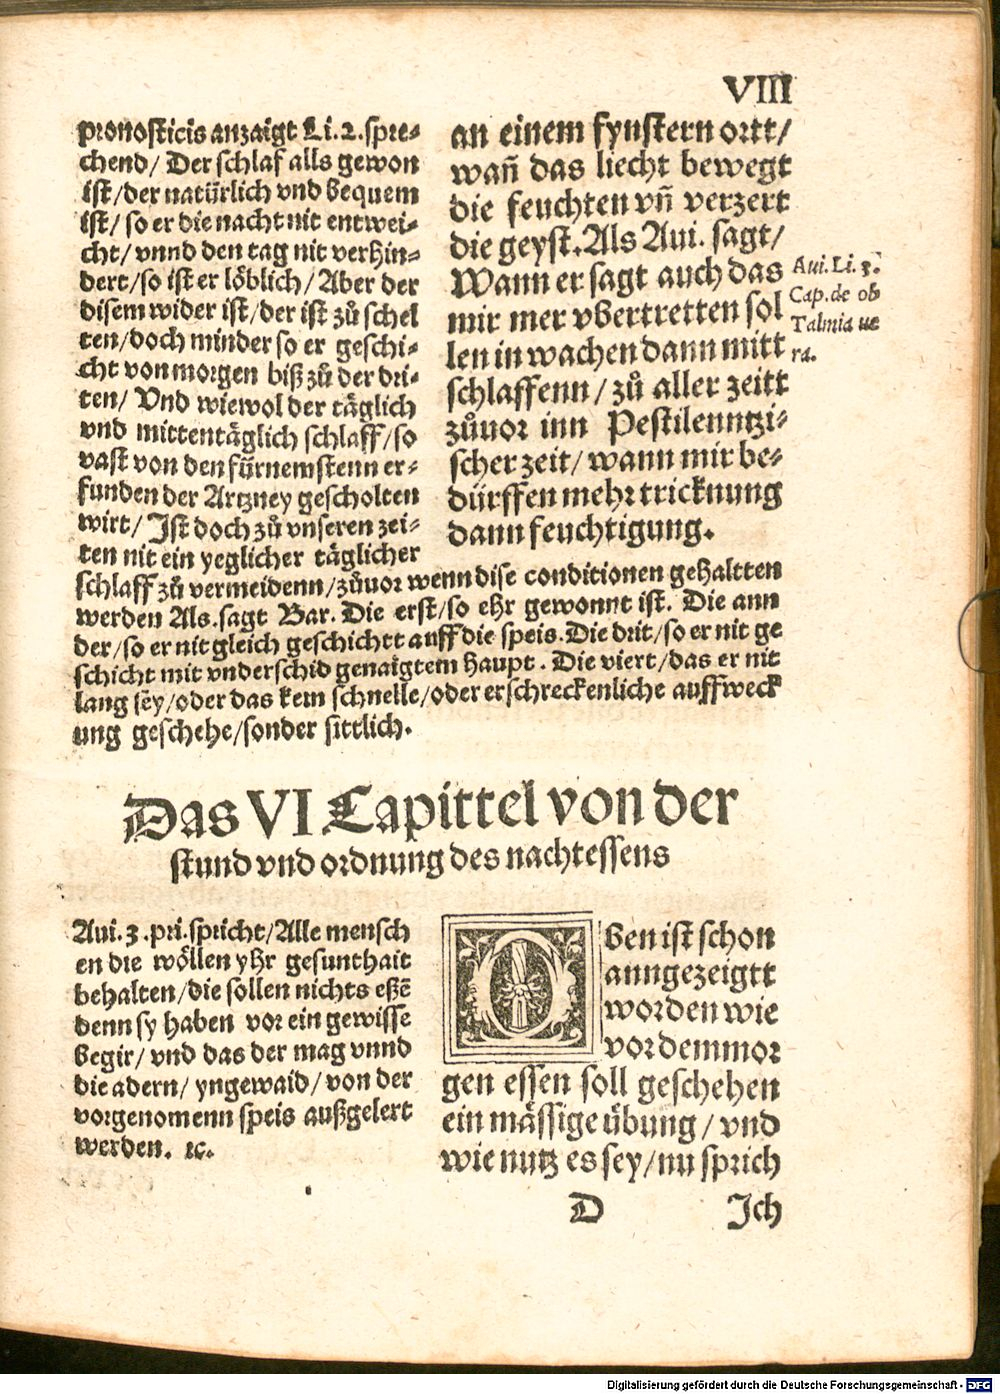 VIII
pronosticis anzaigt Li. 2. spre⸗
chend/ Der schlaf alls gewon
ist/der natürlich vnd bequem
ist/ so er die nacht nit entwei⸗
cht/ vnnd den tag nit verhin⸗
dert/so ist er löblich/ Aber der
disem wider ist/der ist zů schel
ten/doch minder so er geschi⸗
cht von morgen biß zů der dri⸗
ten/ Vnd wiewol der täglich
vnd mittentäglich schlaff/so
vast von den fürnemstenn er⸗
funden der Artzney gescholten
wirt/ Jst doch zů vnseren zei⸗
ten nit ein yeglicher täglicher
an einem fynstern ortt/
wañ das liecht bewegt
die feuchten vñ verzert
die geyst. Als Aui. sagt/
Wann er sagt auch das
mir mer vbertretten sol
len in wachen dann mitt
schlaffenn / zů aller zeitt
zůuor inn Pestilenntzi⸗
scher zeit/ wann mir be⸗
dürffen mehr tricknung
dann feuchtigung.
Aui. Li. 3.
Cap. de ob
Talmia ue
ra.
schlaff zů vermeidenn/zůuor wenn dise conditionen gehaltten
werden Als. sagt Bar. Die erst/so ehr gewonnt ist. Die ann
der/so er nit gleich geschichtt auff die speis. Die drit/so er nit ge
schicht mit vnderschid genaigtem haupt. Die viert/das er nit
lang sey/oder das kem schnelle/oder erschreckenliche auffweck
ung geschehe/sonder sittlich.
Das VI Capittel von der
stund vnd ordnung des nachtessens
Aui. 3. pri. spricht/Alle mensch
en die wöllen yhr gesunthait
behalten/die sollen nichts eßẽ
denn sy haben vor ein gewisse
begir/ vnd das der mag vnnd
die adern/ yngewaid/ von der
vorgenomenn speis außgelert
werden. ꝛc.
Oben ist schon
anngezeigtt
worden wie
vor dem mor
gen essen soll geschehen
ein mässige übung / vnd
wie nutz es sey/nu sprich
D Jch
Digitalisierung gefördert durch die Deutsche Forschungsgemeinschaft - DFG